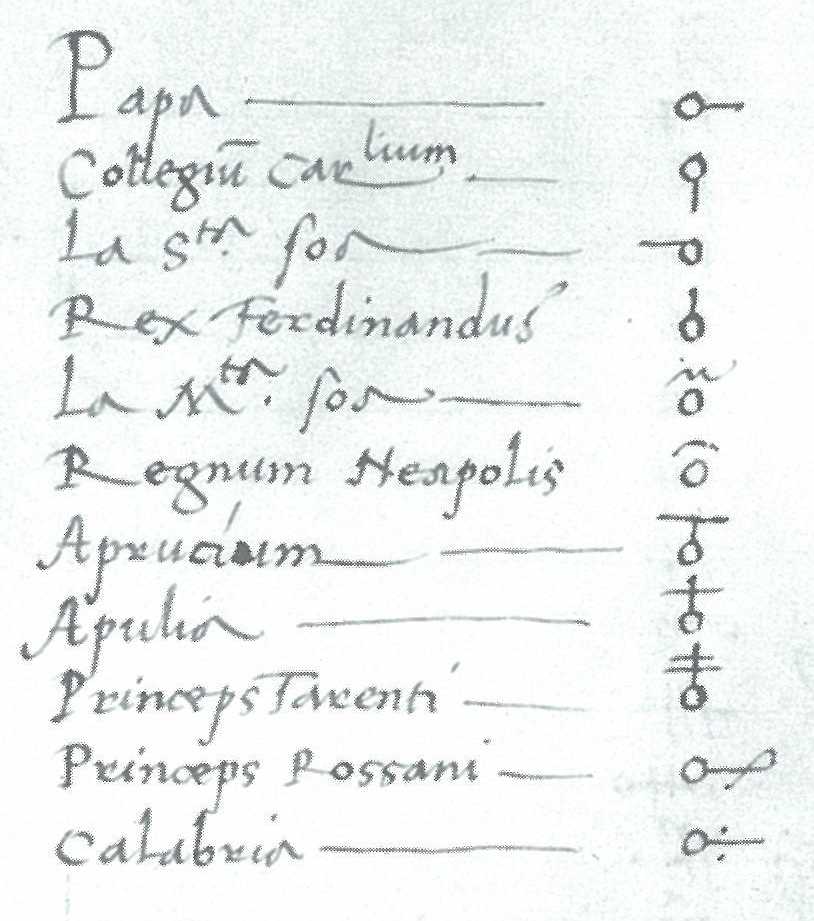 Papa
Collegiū Carlium
La Stra. sor
Rex Ferdinandus
La Mtra. sor
Regnum Neapolis
Aprucium
Apulia
Princeps Tarenti
Princeps Rossani
Calabria